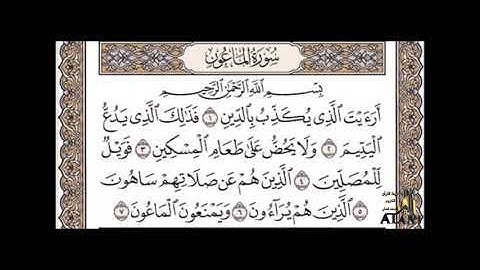 سُورَةُ الْمَاعُونِ
بِسْمِ اللَّهِ الرَّحْمَٰنِ الرَّحِيمِ
أَرَءَيْتَ الَّذِي يُكَذِّبُ بِالدِّينِ ١ فَذَٰلِكَ الَّذِي يَدُعُّ
الْيَتِيمَ ٢ وَلَا يَحُضُّ عَلَىٰ طَعَامِ الْمِسْكِينِ ٣ فَوَيْلٌ
لِّلْمُصَلِّينَ ٤ الَّذِينَ هُمْ عَن صَلَاتِهِمْ سَاهُونَ
٥ الَّذِينَ هُمْ يُرَآءُونَ ٦ وَيَمْنَعُونَ الْمَاعُونَ ٧